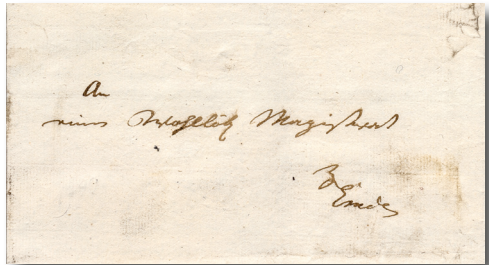 An
einen Wohllöbl Magistrat
Zu
Emden